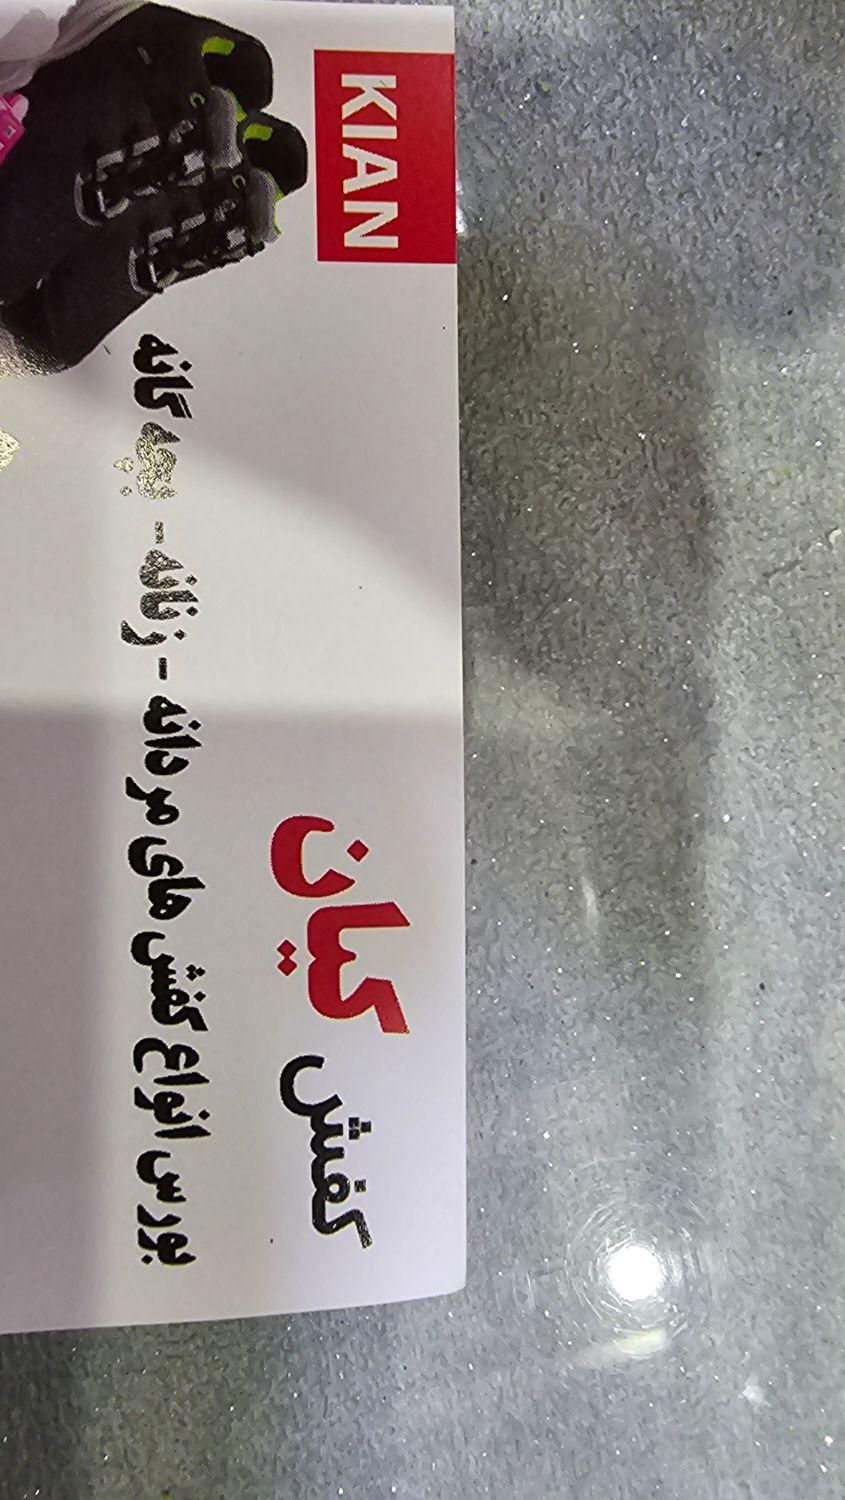 KIAN
کفش کیان
بورس انواع کفش های مردانه - زنانه - بچه گانه